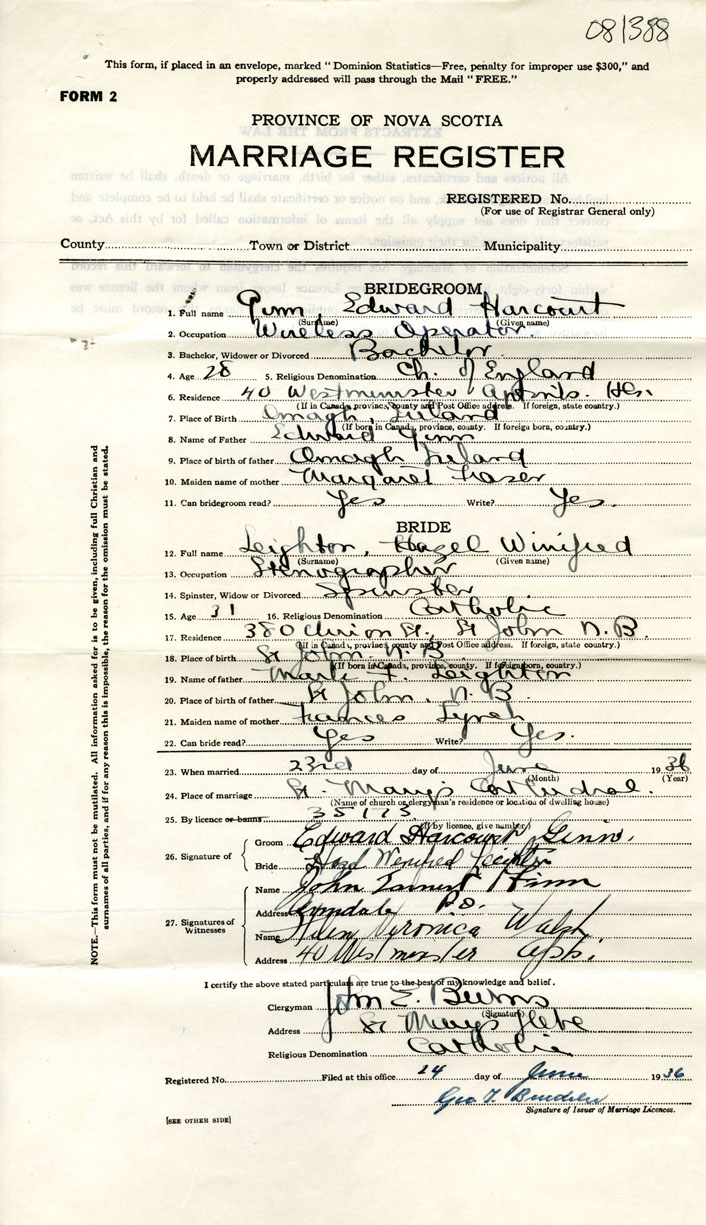 081388
This form, if placed in an envelope, marked "Dominion Statistics—Free, penalty for improper use $300," and
properly addressed will pass through the Mail "FREE."
FORM 2
PROVINCE OF NOVA SCOTIA
MARRIAGE REGISTER
REGISTERED No.
(For use of Registrar General only)
County Town or District Municipality
BRIDEGROOM
1. Full name Ginn Edward Harcourt
(Surname) (Given name)
2. Occupation Wireless Operator.
3. Bachelor, Widower or Divorced Bachelor
4. Age 28 5. Religious Denomination Ch. of England
6. Residence 40 Westminster Hx.
(If in Canada, province, county and Post Office address. If foreign, state country.)
7. Place of Birth Omagh, Ireland
(If born in Canada, province, county. If foreign born, country.)
8. Name of Father Edward Ginn
9. Place of birth of father Omagh Ireland
10. Maiden name of mother Margaret Fraser
11. Can bridegroom read? Yes Write? Yes.
BRIDE
12. Full name Leighton, Hazel Winifred
(Surname) (Given name)
13. Occupation Stenographer
14. Spinster, Widow or Divorced Spinster
15. Age 31 16. Religious Denomination Catholic
17. Residence 380 Union St., St John N.B.
(If in Canada, province, county and Post Office address. If foreign, state country.)
18. Place of birth St John. N.B
(If born in Canada, province, county. If foreign born, country.)
19. Name of father Mark F. Leighton
20. Place of birth of father St John, N.B
21. Maiden name of mother Frances Lynch
22. Can bride read? Yes Write? Yes.
23. When married 23rd day of June 1936
(Month) (Year)
24. Place of marriage St. Mary's Cathedral.
(Name of church or clergyman's residence or location of dwelling house)
25. By licence or banns 35175
(If by licence, give number)
26. Signature of Groom Edward Harcourt Ginn.
Bride Hazel Winifred Leighton
27. Signatures of Witnesses
Name John
Address Armdale P.O.
Name Helen Veronica Walsh
Address 40 Westminster Apts.
I certify the above stated particulars are true to the best of my knowledge and belief.
Clergyman John E. Burns
(Signature)
Address St Mary's Glebe
Religious Denomination Catholic
Registered No. Filed at this office 24 day of June 1936
Geo. T.
Signature of Issuer of Marriage Licences.
[SEE OTHER SIDE]
NOTE.—This form must not be mutilated. All information asked for is to be given, including full Christian and
surnames of all parties, and if for any reason this is impossible, the reason for the omission must be stated.